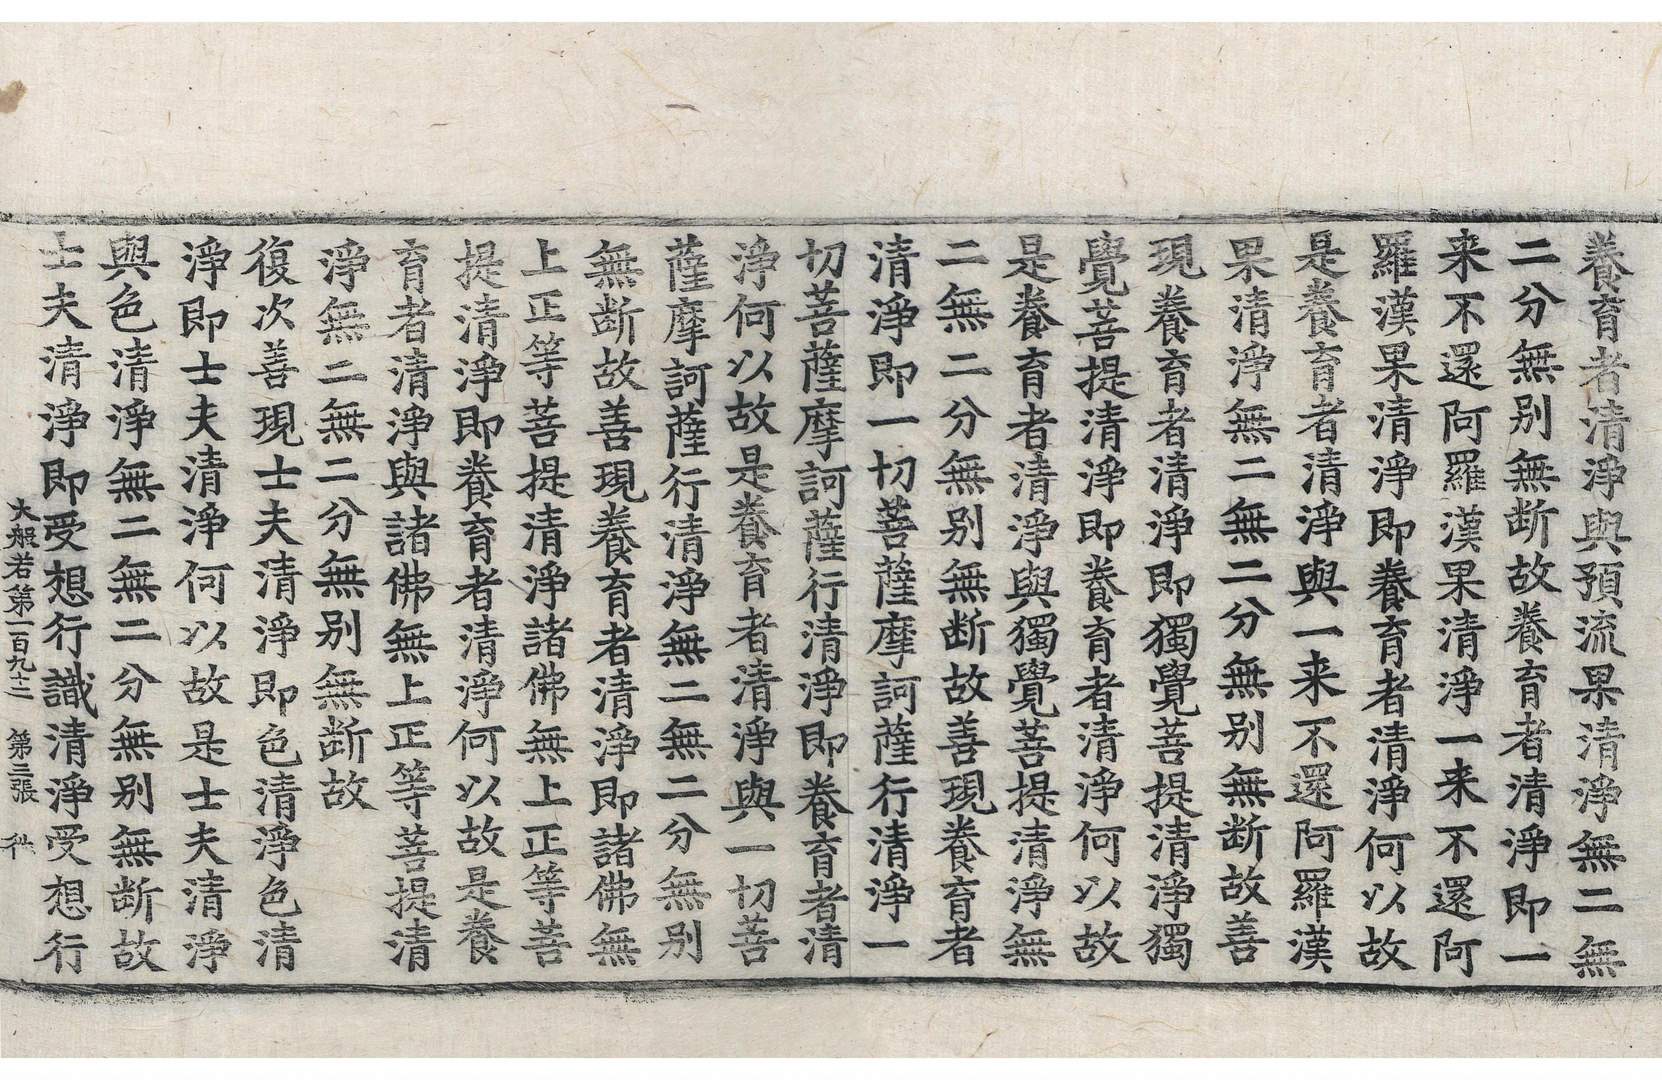 養育者清淨與預流果清淨無二無
二分無別無断故養育者清淨即一
来不還阿羅漢果清淨一来不還阿
羅漢果清淨即養育者清淨何以故
是養育者清淨與一来不還阿羅漢
果清淨無二無二分無別無断故善
現養育者清淨即獨覺菩提清淨獨
覺菩提清淨即養育者清淨何以故
是養育者清淨與獨覺菩提清淨無
二無二分無別無断故善現養育者
清淨即一切菩薩摩訶薩行清淨一
切菩薩摩訶薩行清淨即養育者清
淨何以故是養育者清淨與一切菩
薩摩訶薩行清淨無二無二分無別
無断故善現養育者清淨即諸佛無
上正等菩提清淨諸佛無上正等菩
提清淨即養育者清淨何以故是養
育者清淨與諸佛無上正等菩提清
淨無二無二分無別無断故
復次善現士夫清淨即色清淨色清
淨即士夫清淨何以故是士夫清淨
與色清淨無二無二分無別無断故
士夫清淨即受想行識清淨受想行
大般若第一百九十二 第三張